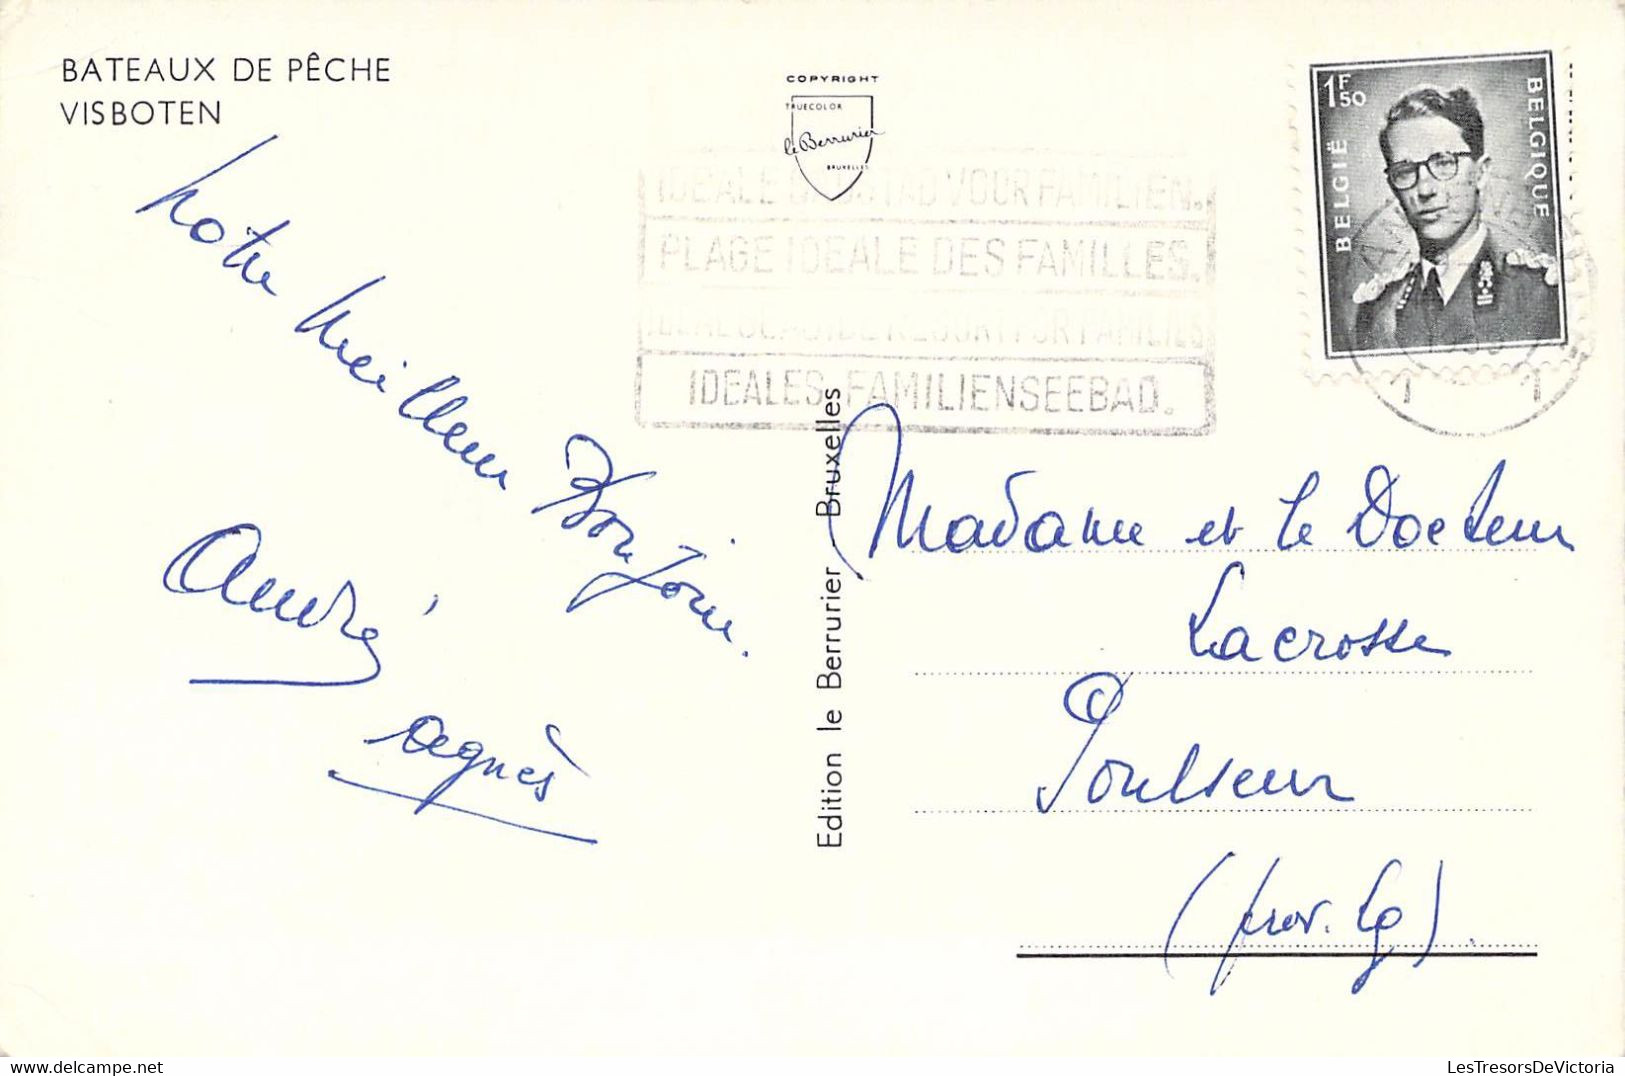 BATEAUX DE PÊCHE
VISBOTEN
COPYRIGHT
TRUECOLOR
le Berrurier
BRUXELLES
1F50
BELGIË
BELGIQUE
IDEALE VOUR FAMILIEN.
PLAGE IDEALE DES FAMILLES.
IDEAL RESORT FOR FAMILIES
IDEALES FAMILIENSEEBAD.
1 1
Notre meilleur
Bonjour.
André
Agnès
Edition le Berrurier - Bruxelles
Madame et le Docteur
Lacrosse
Poulseur
(prov. Lg).
LesTresorsDeVictoria
delcampe.net